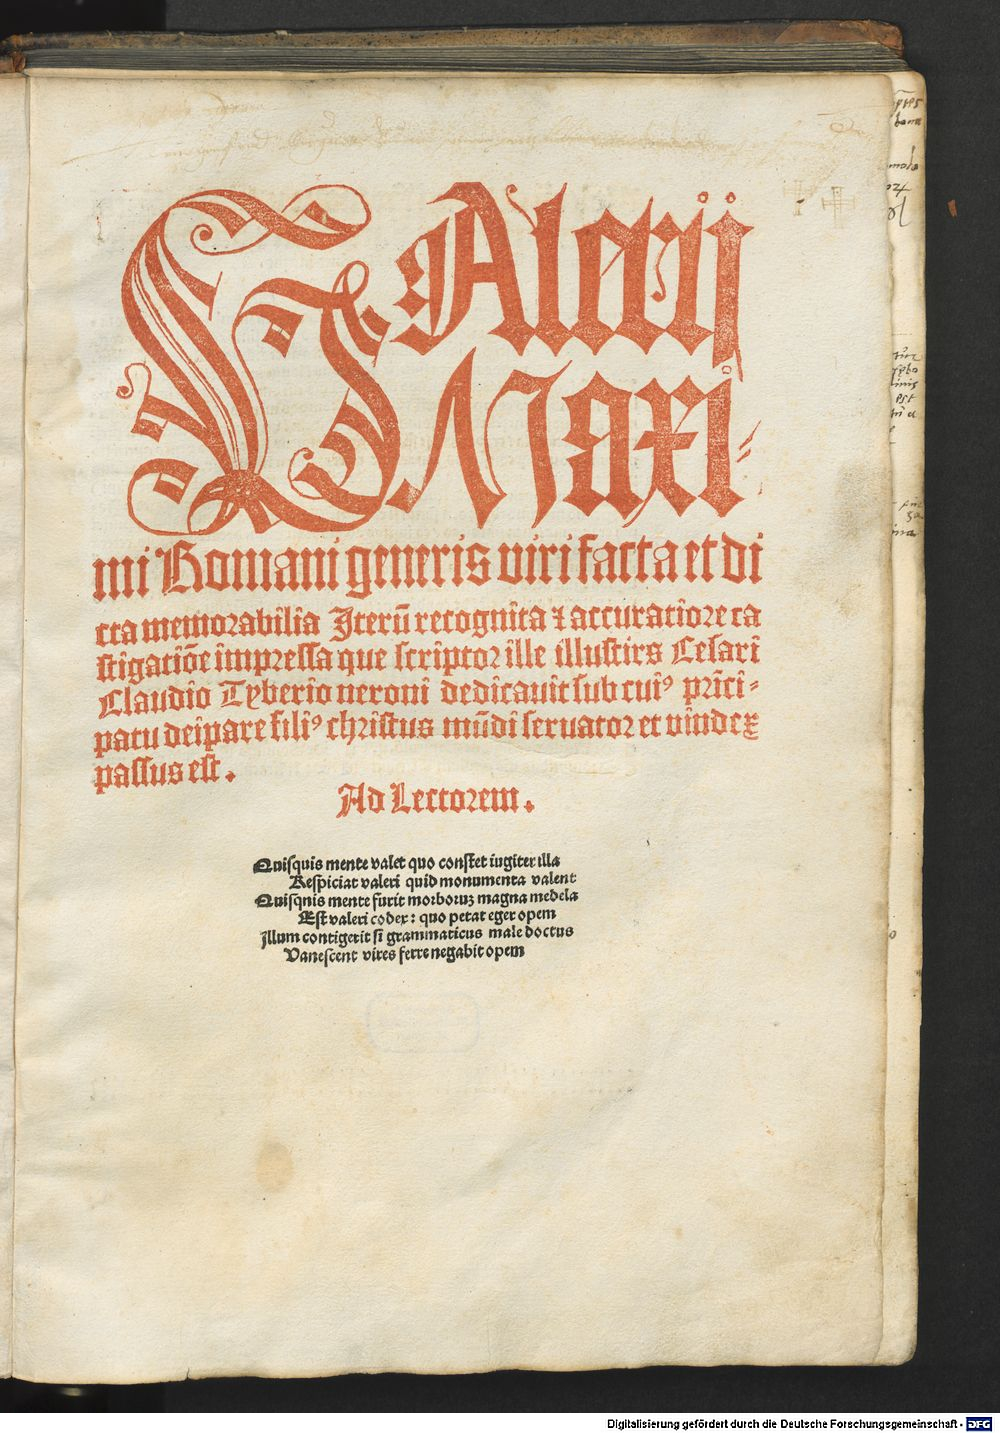 VAlerij
Maxi-
mi Romani generis viri facta et di
cta memorabilia Iterū recognita ⁊ accuratiore ca
stigatiōe impressa que scriptor ille illustirs Cesari
Claudio Tyberio neroni dedicavit sub cuiꝰ prīci-
patu deipare filiꝰ christus mūdi servator et vindex
passus est.
Ad Lectorem.
Quisquis mente valet quo constet iugiter illa
Respiciat valeri quid monumenta valent
Quisqnis mente furit morboruꝫ magna medela
Est valeri codex: quo petat eger opem
Illum contigerit si grammaticus male doctus
Vanescent vires ferre negabit opem
Digitalisierung gefördert durch die Deutsche Forschungsgemeinschaft - DFG